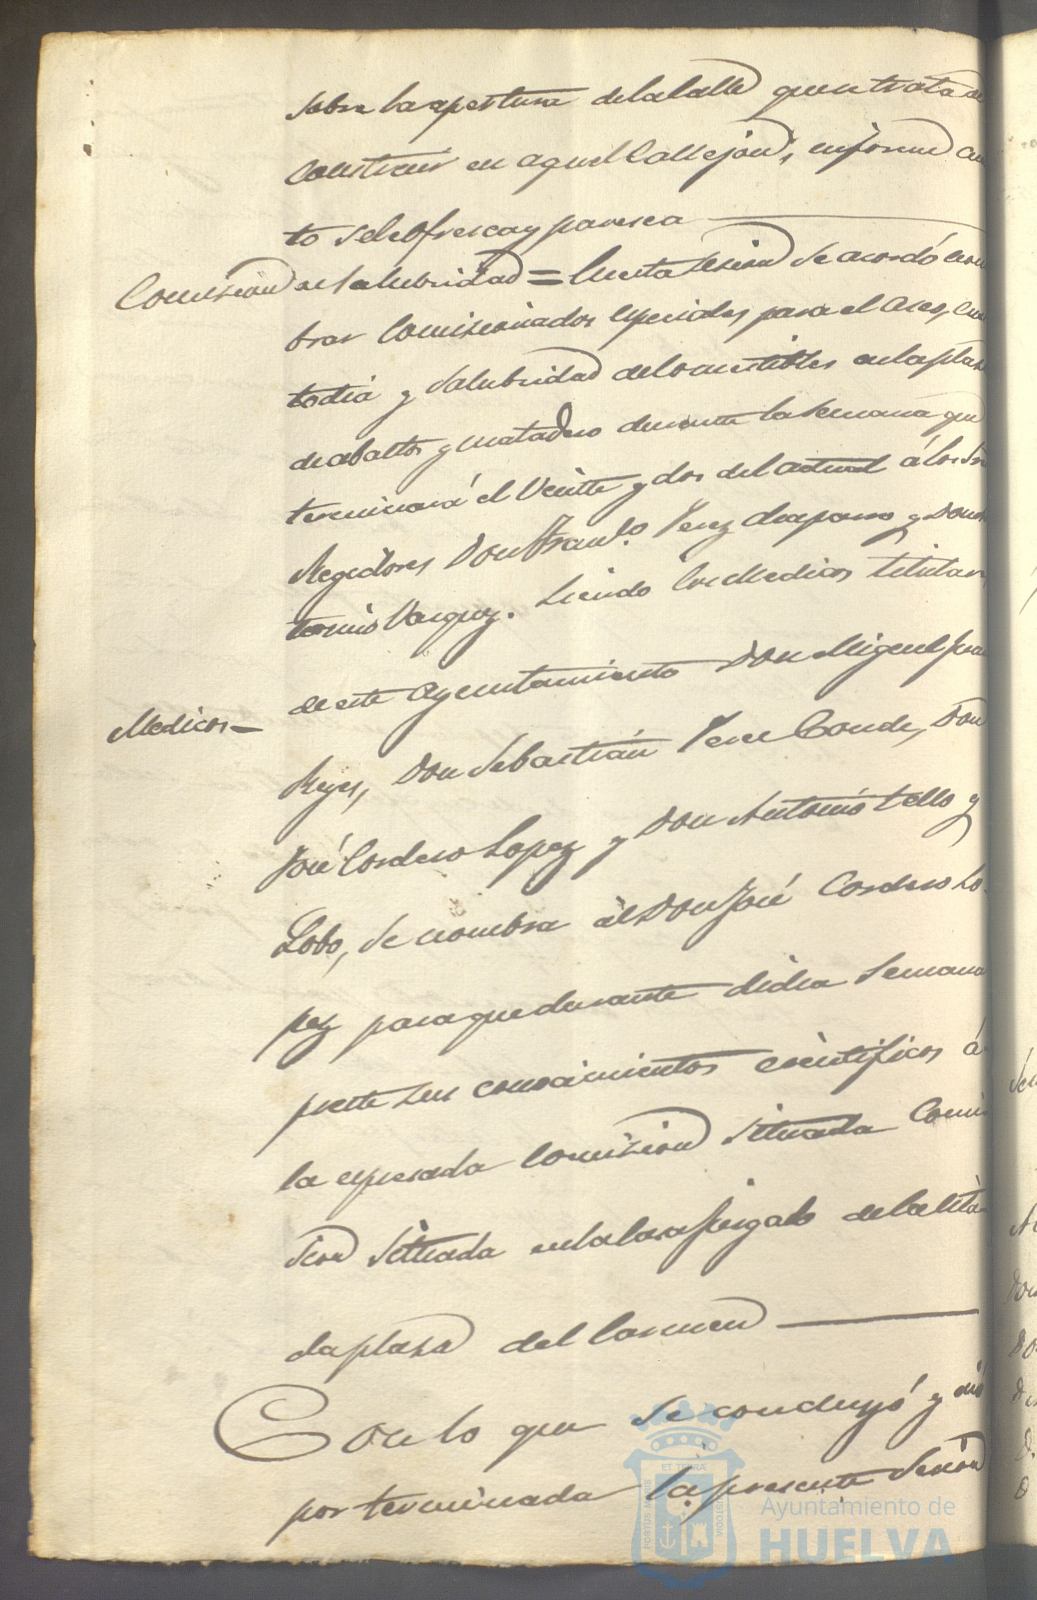 sobre la apertura de la Calle que se trata de
construir en aquel Callejon, informe cuan
to se le ofresca y paresca
Comision de Salubridad = En esta sesion se acordó nom
brar Comisionados especiales para el aseo, cus
todia y Salubridad de comestibles en la plaza
de abastos y matadero durante la semana que
terminará el Veinte y dos del actual á los Sres
Regidores Don Franco. Perez y Don An
tonio Vazquez. Siendo los Medicos titulares
de este Ayuntamiento Don Miguel
Medicos
Reyes, Don Sebastián Perez Conde, Don
José Cordero Lopez y Don Antonio Tello y
Lobo, se nombra al Don José Cordero Lo
pez para que durante dicha semana
preste sus conocimientos cientificos á
la espresada Comision situada Comi
sion situada en la Casa Juzgado de la
da plaza del Carmen
Con lo que se concluyó y dió
por terminada la presente Sesion
ET TERRA
PORTUS MARIS
CUSTODIA
Ayuntamiento de
HUELVA